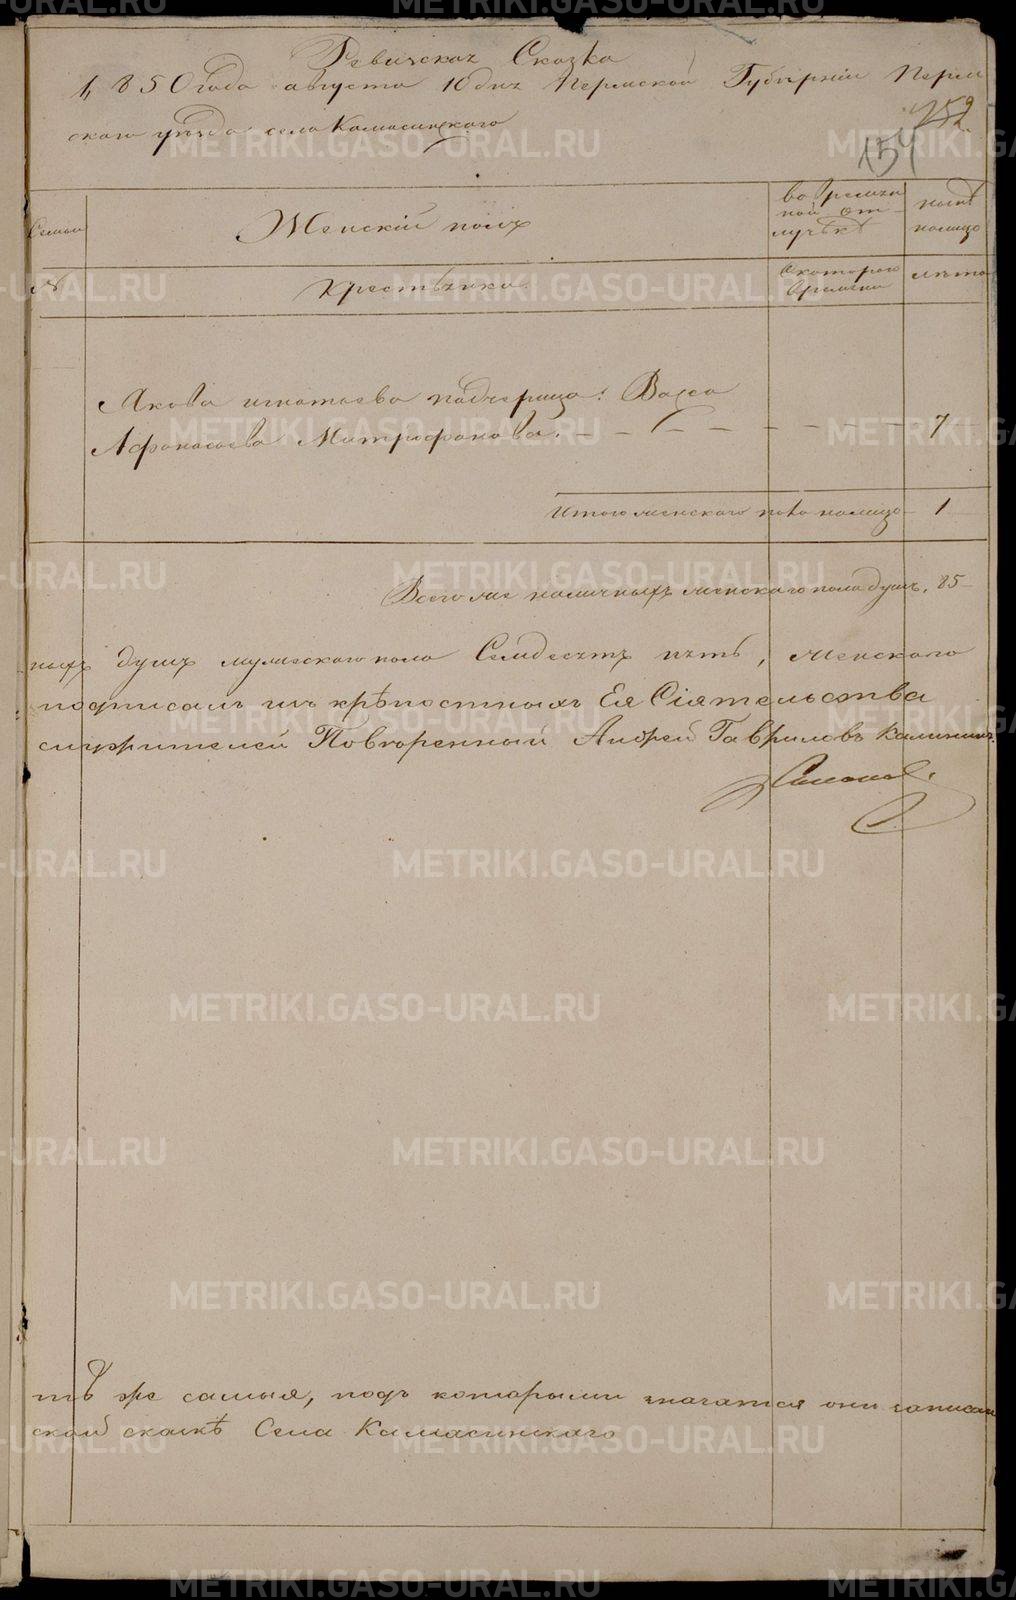 Ревижская Сказка
1850 года августа 10 дня Пермской Губерніи Перм
скаго уѣзда села Камасинскаго
152
154
Семьи
Женскій полъ
во времян
ной от-
лучкѣ
нынѣ
налицо
№
Крестьянка
С котораго
времени
лѣта
Якова игнатьева падчерица: Васса
Афанасьева Митрофанова. 7
Итого женскаго пола налицо 1
Всего же наличныхъ женскаго пола душъ. 85
ныхъ душъ мужескаго пола Семдесятъ пять, женскаго
подписалъ изъ крѣпостныхъ Ея Сіятельства
Повѣренный Андрей Гавриловъ Калининъ.
тѣ же самыя, подъ которыми значатся они записан
ской сказкѣ Села Камасинскаго
METRIKI.GASO-URAL.RU